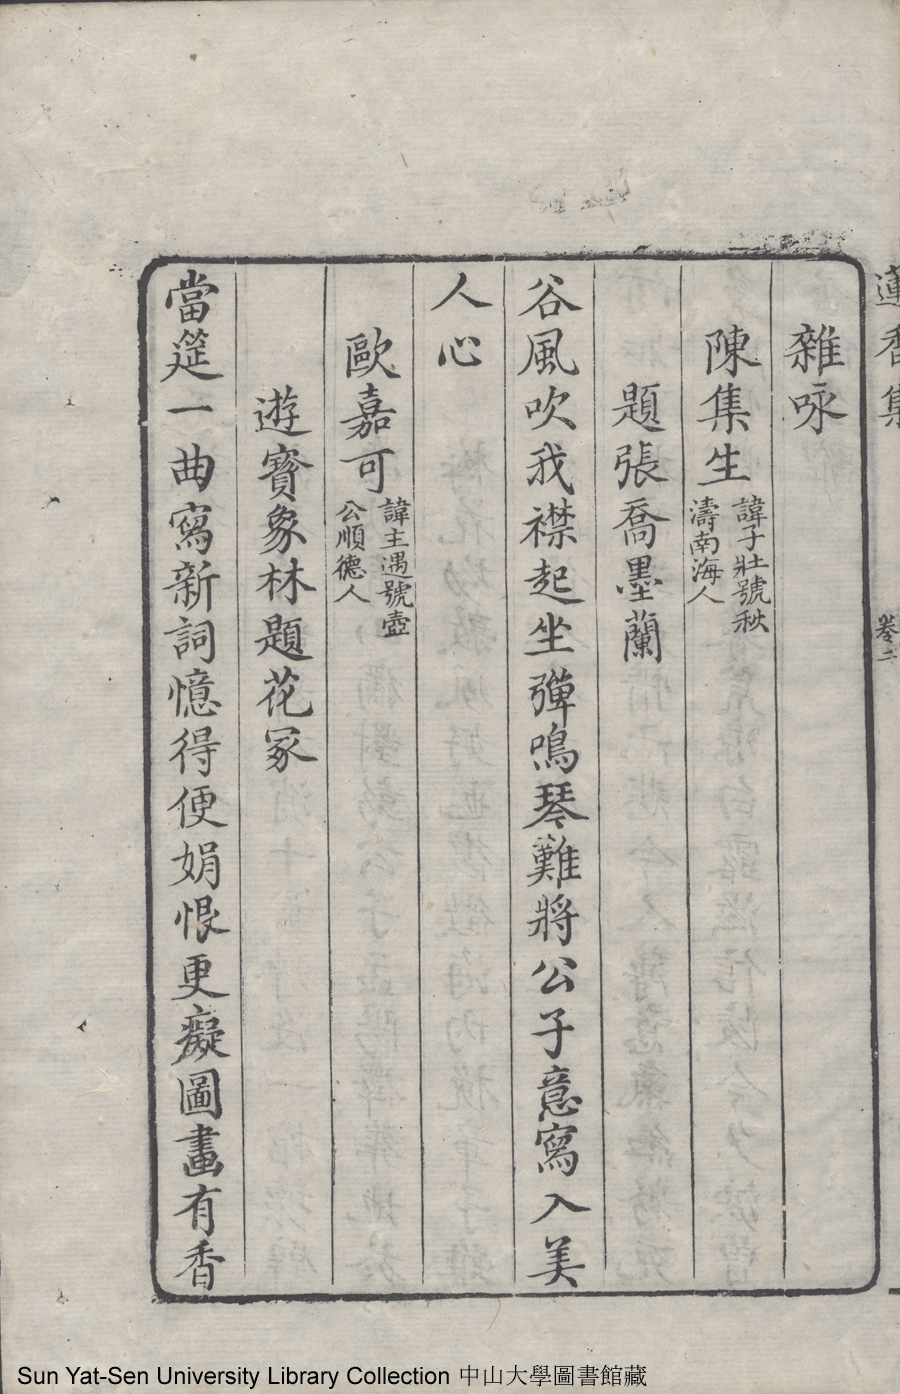 蓮香集
卷二
雜咏
陳集生 諱子壯號秋
濤南海人
題張喬墨蘭
谷風吹我襟起坐彈鳴琴難將公子意寫入美
人心
歐嘉可 諱主遇號壺
公順德人
遊寳象林題花冢
當筵一曲寫新詞憶得便娟恨更癡圖畫有香
Sun Yat-Sen University Library Collection 中山大學圖書館藏